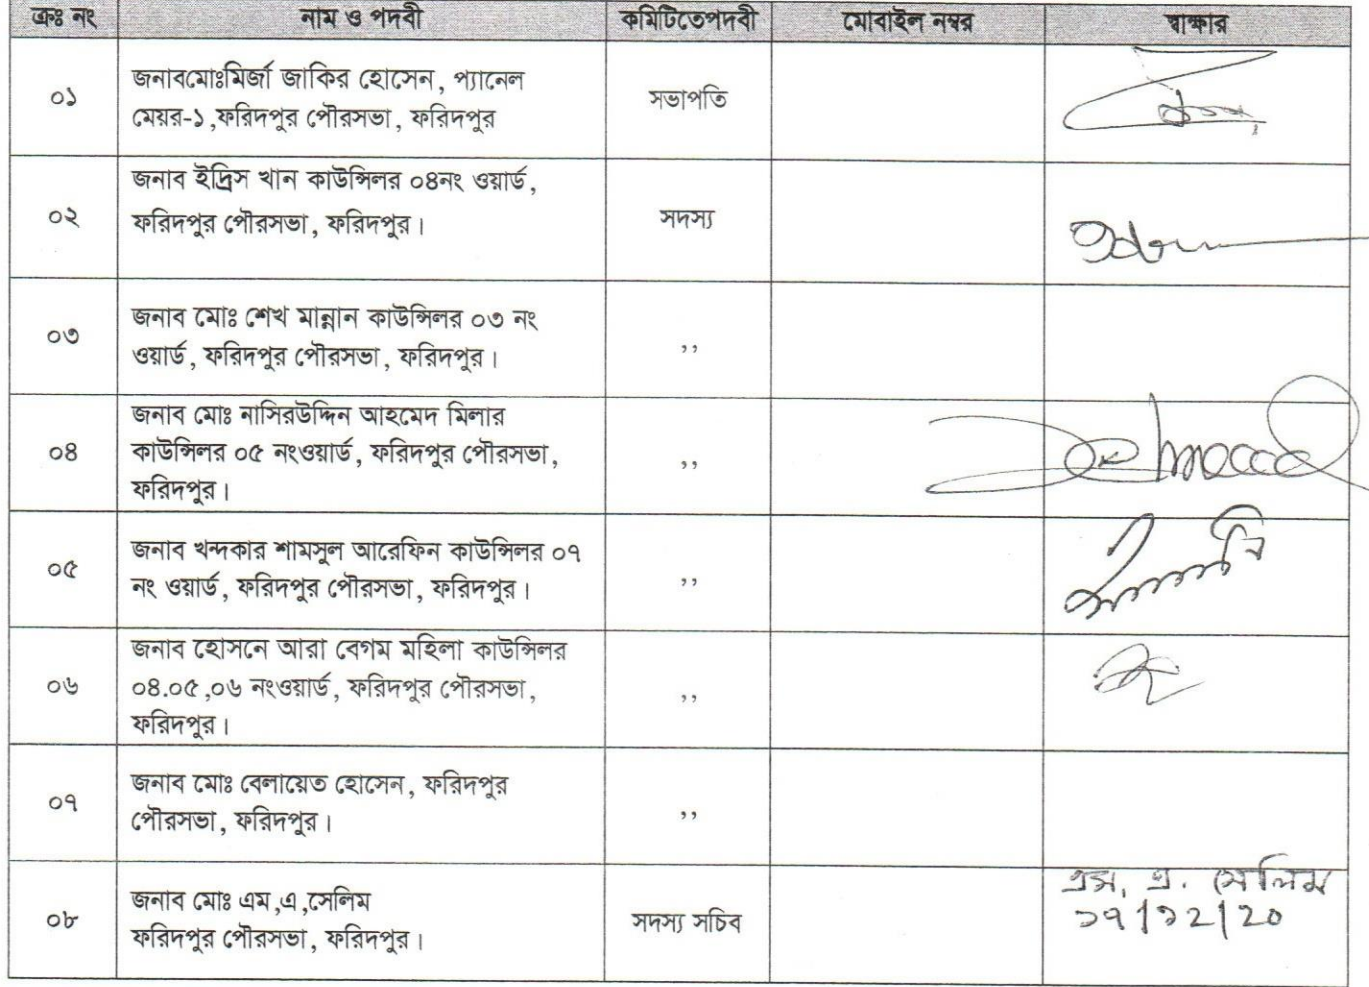 ক্রঃ নং নাম ও পদবী কমিটিতেপদবী মোবাইল নম্বর স্বাক্ষার
০১ জনাবমোঃমির্জা জাকির হোসেন, প্যানেল সভাপতি
মেয়র-১,ফরিদপুর পৌরসভা, ফরিদপুর
০২ জনাব ইদ্রিস খান কাউন্সিলর ০৪নং ওয়ার্ড, সদস্য
ফরিদপুর পৌরসভা, ফরিদপুর।
০৩ জনাব মোঃ শেখ মান্নান কাউন্সিলর ০৩ নং ,,
ওয়ার্ড, ফরিদপুর পৌরসভা, ফরিদপুর।
০৪ জনাব মোঃ নাসিরউদ্দিন আহমেদ মিলার ,,
কাউন্সিলর ০৫ নংওয়ার্ড, ফরিদপুর পৌরসভা,
ফরিদপুর।
০৫ জনাব খন্দকার শামসুল আরেফিন কাউন্সিলর ০৭ ,,
নং ওয়ার্ড, ফরিদপুর পৌরসভা, ফরিদপুর।
০৬ জনাব হোসনে আরা বেগম মহিলা কাউন্সিলর ,,
০৪.০৫,০৬ নংওয়ার্ড, ফরিদপুর পৌরসভা,
ফরিদপুর।
০৭ জনাব মোঃ বেলায়েত হোসেন, ফরিদপুর ,,
পৌরসভা, ফরিদপুর।
০৮ জনাব মোঃ এম,এ,সেলিম সদস্য সচিব এস, এ. সেলিম
ফরিদপুর পৌরসভা, ফরিদপুর। ১৭/১২/২০